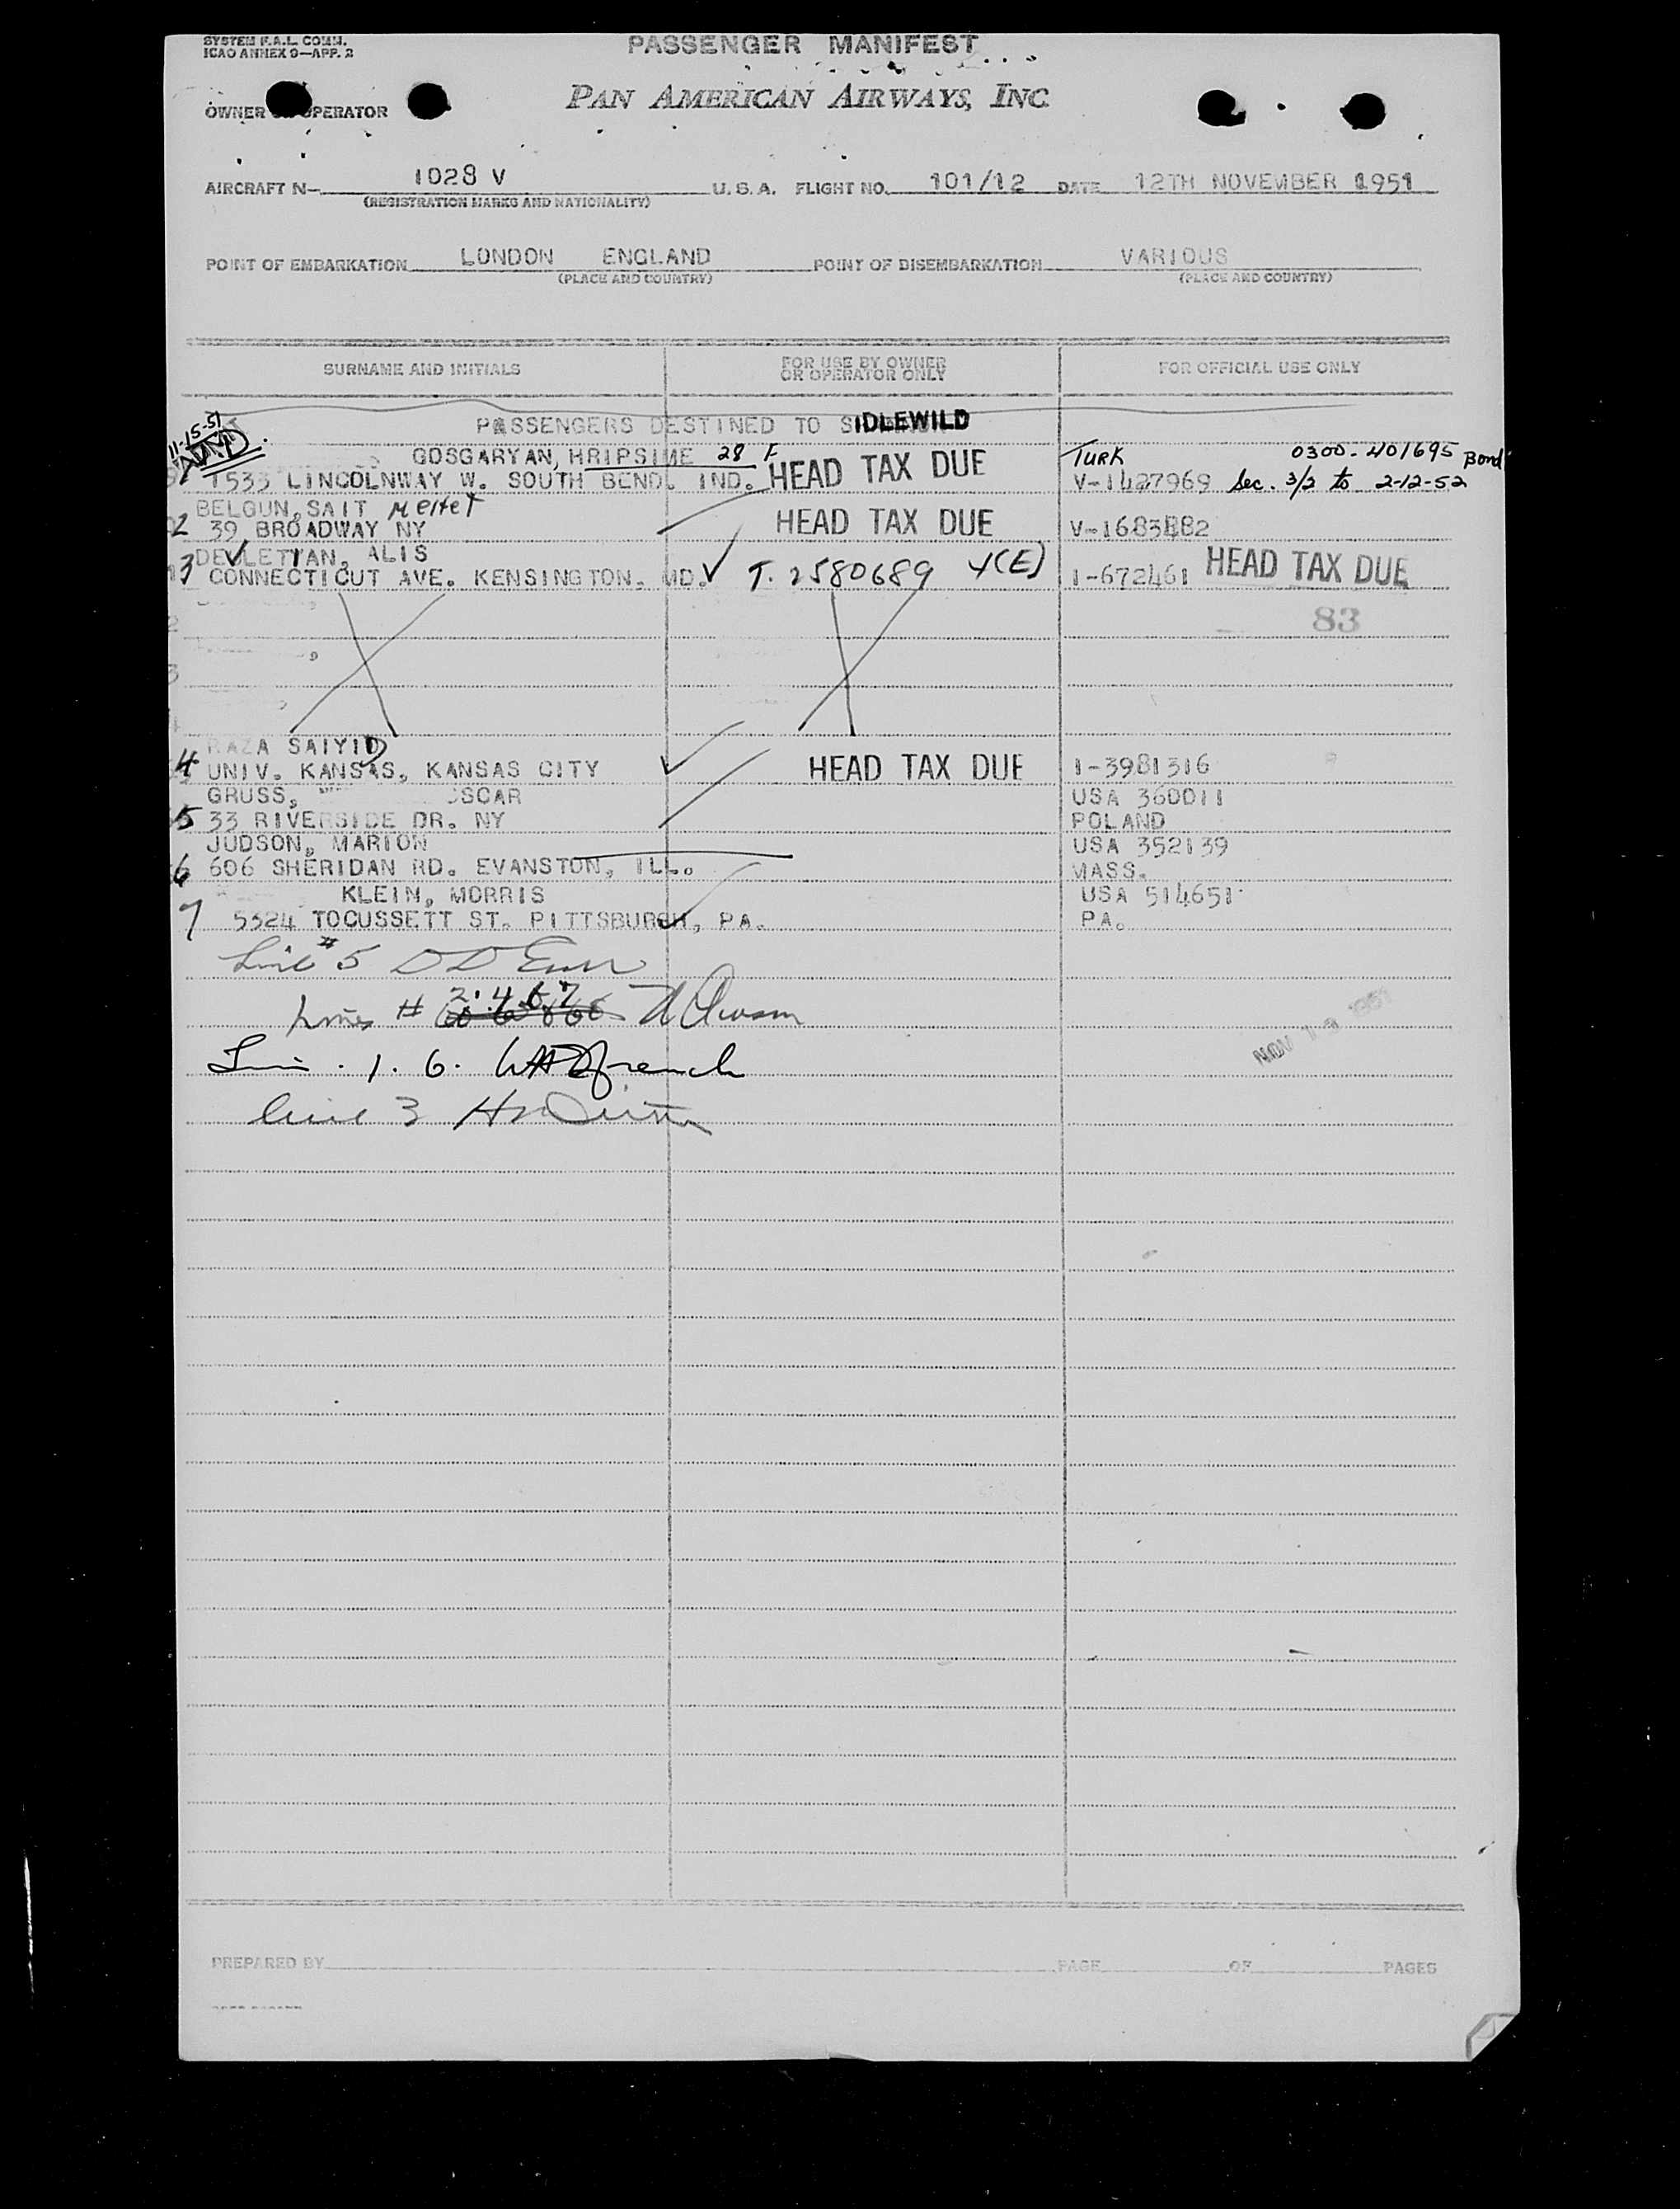 SYSTEM F.A.L. COMM.
ICAO ANNEX 9—APP. 2
PASSENGER MANIFEST
OWNER OPERATOR
PAN AMERICAN AIRWAYS, INC.
AIRCRAFT N— 1028 V U.S.A. FLIGHT NO. 101/12 DATE 12TH NOVEMBER 1951
(REGISTRATION MARKS AND NATIONALITY)
POINT OF EMBARKATION LONDON ENGLAND POINT OF DISEMBARKATION VARIOUS
(PLACE AND COUNTRY) (PLACE AND COUNTRY)
SURNAME AND INITIALS FOR USE BY OWNER OR OPERATOR ONLY FOR OFFICIAL USE ONLY
11-15-51
PASSENGERS DESTINED TO IDLEWILD
GOSGARYAN, HRIPSIME 28 F HEAD TAX DUE TURK 0300-401695 Bond
1533 LINCOLNWAY W. SOUTH BEND. IND. V-1427969 Sec. 3/2 to 2-12-52
BELGUN, SAIT
2 39 BROADWAY NY HEAD TAX DUE V-1683882
ALIS
3 CONNECTICUT AVE. KENSINGTON. MD. T. 2580689 I-672461 HEAD TAX DUE
83
RAZA SAIYID
4 UNIV. KANSAS, KANSAS CITY HEAD TAX DUE I-3981316
GRUSS, OSCAR USA 360011
5 33 RIVERSIDE DR. NY POLAND
JUDSON, MARION USA 352139
6 606 SHERIDAN RD. EVANSTON, ILL. MASS.
KLEIN, MORRIS USA 514651
7 5324 TOCUSSETT ST. PITTSBURGH, PA. PA.
Line #5
Lines # 2.4.6.7
1. 6. French
line 3
NOV 13 1951
PREPARED BY PAGE OF PAGES